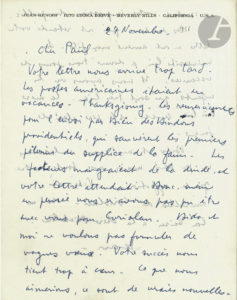 JEAN RENOIR · 1273 LEONA DRIVE · BEVERLY HILLS · CALIFORNIA · U.S.A.
27 Novembre
Votre lettre nous arrive trop tard.
les postes americaines étaient en
vacances. Thanksgiving. les
pour l'envoi par des dindons
providentiels, qui sauvèrent les premiers
pélerins du supplice de la faim. Les
facteurs mangeaient de la dinde, et
votre lettre attendait. Donc,
en pensée nous n'avons pas pu être
avec vous pour Coriolan. Dido et
moi ne voulons pas formuler de
vagues vœux. Votre succès nous
tient trop à cœur. Ce que nous
aimerions, ce sont de vraies nouvelles.